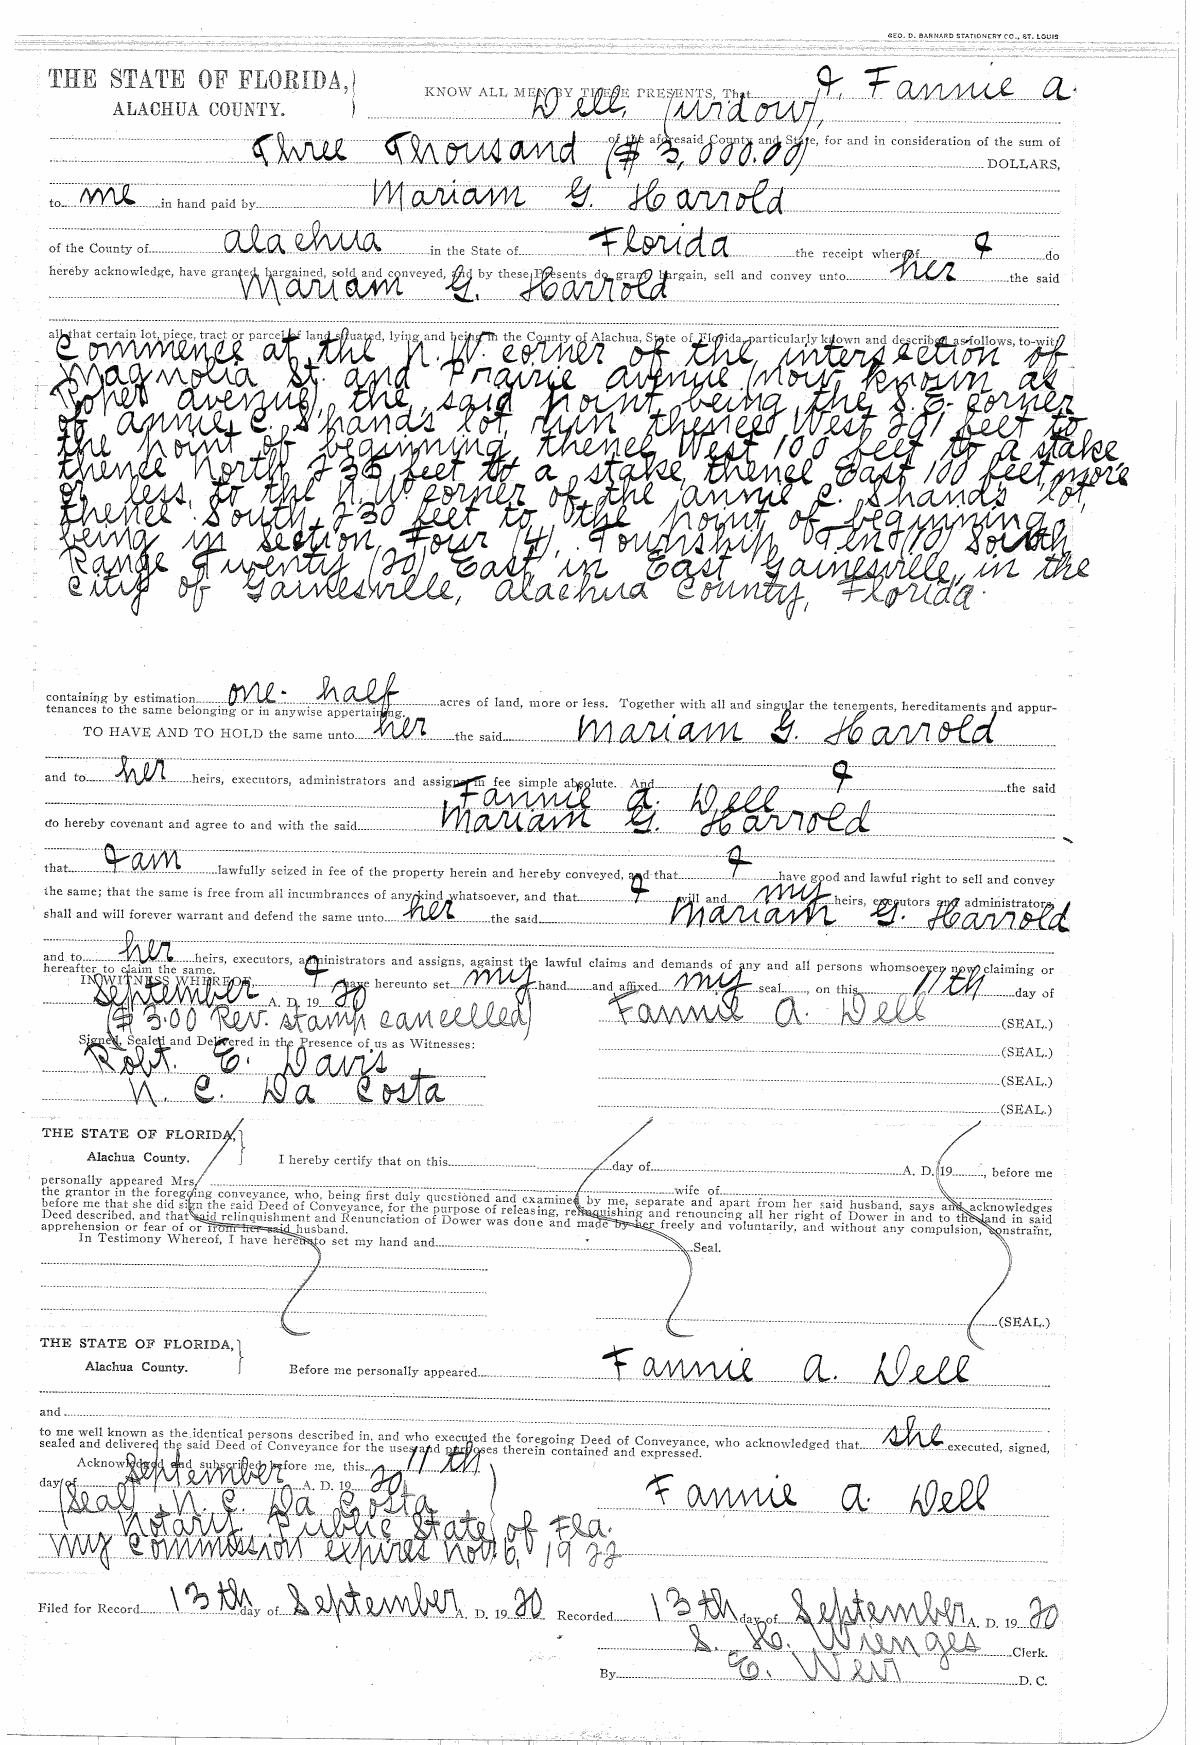 GEO. D. BARNARD STATIONERY CO., ST. LOUIS
THE STATE OF FLORIDA,
ALACHUA COUNTY.
KNOW ALL MEN BY THESE PRESENTS, That I, Fannie A.
Dell, (widow),
of the aforesaid County and State, for and in consideration of the sum of
Three Thousand ($3,000.00) DOLLARS,
to me in hand paid by Mariam G. Harrold
of the County of Alachua in the State of Florida the receipt whereof I do
hereby acknowledge, have granted, bargained, sold and conveyed, and by these Presents do grant, bargain, sell and convey unto her the said
Mariam G. Harrold
all that certain lot, piece, tract or parcel of land situated, lying and being in the County of Alachua, State of Florida, particularly known and described as follows, to-wit:
Commence at the N.W. corner of the intersection of
Magnolia St. and Prairie Avenue (now known as
Roper Avenue), the said point being the S.E. corner
of Annie C. Shands lot, run thence West 201 feet to
the point of beginning, thence West 100 feet to a stake
thence North 230 feet to a stake, thence East 100 feet more
or less, to the N.W. corner of the Annie C. Shands lot,
thence South 230 feet to the point of beginning
being in Section Four (4), Township Ten (10) South
Range Twenty (20) East in East Gainesville, in the
City of Gainesville, Alachua County, Florida.
containing by estimation one-half acres of land, more or less. Together with all and singular the tenements, hereditaments and appur-
tenances to the same belonging or in anywise appertaining.
TO HAVE AND TO HOLD the same unto her the said Mariam G. Harrold
and to her heirs, executors, administrators and assigns in fee simple absolute. And I the said
Fannie A. Dell
do hereby covenant and agree to and with the said Mariam G. Harrold
that I am lawfully seized in fee of the property herein and hereby conveyed, and that I have good and lawful right to sell and convey
the same; that the same is free from all incumbrances of any kind whatsoever, and that I will and my heirs, executors and administrators
shall and will forever warrant and defend the same unto her the said Mariam G. Harrold
and to her heirs, executors, administrators and assigns, against the lawful claims and demands of any and all persons whomsoever now claiming or
hereafter to claim the same.
IN WITNESS WHEREOF, I have hereunto set my hand and affixed my seal, on this 11th day of
September A. D. 19 20
($3.00 Rev. stamp cancelled) Fannie A. Dell (SEAL.)
Signed, Sealed and Delivered in the Presence of us as Witnesses: (SEAL.)
Robt. E. Davis (SEAL.)
N. C. Da Costa (SEAL.)
THE STATE OF FLORIDA,
Alachua County. I hereby certify that on this day of A. D. 19 , before me
personally appeared Mrs. wife of
the grantor in the foregoing conveyance, who, being first duly questioned and examined by me, separate and apart from her said husband, says and acknowledges
before me that she did sign the said Deed of Conveyance, for the purpose of releasing, relinquishing and renouncing all her right of Dower in and to the land in said
Deed described, and that said relinquishment and Renunciation of Dower was done and made by her freely and voluntarily, and without any compulsion, constraint,
apprehension or fear of or from her said husband.
In Testimony Whereof, I have hereunto set my hand and Seal.
(SEAL.)
THE STATE OF FLORIDA,
Alachua County. Before me personally appeared Fannie A. Dell
and
to me well known as the identical persons described in, and who executed the foregoing Deed of Conveyance, who acknowledged that she executed, signed,
sealed and delivered the said Deed of Conveyance for the uses and purposes therein contained and expressed.
Acknowledged and subscribed before me, this 11th
day of September A. D. 19 20
(Seal) N. C. Da Costa Fannie A. Dell
Notary Public State of Fla.
My Commission expires Nov. 6, 1922
Filed for Record 13th day of September A. D. 19 20 Recorded 13th day of September A. D. 19 20
S. H. Wienges Clerk.
By E. Weir D. C.